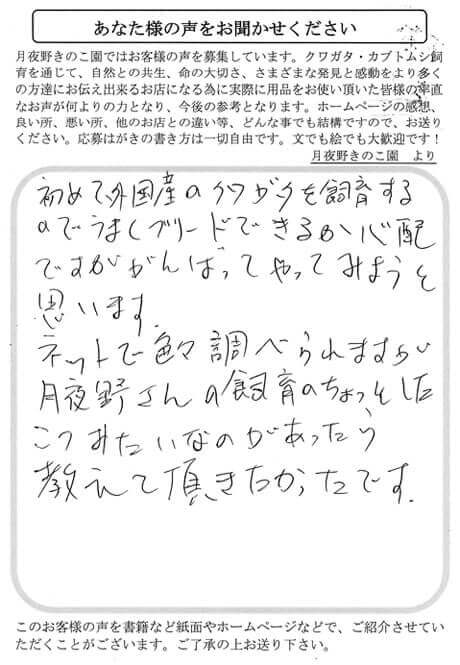 あなた様の声をお聞かせください
月夜野きのこ園ではお客様の声を募集しています。クワガタ・カブトムシ飼
育を通じて、自然との共生、命の大切さ、さまざまな発見と感動をより多く
の方達にお伝え出来るお店になる為に実際に用品をお使い頂いた皆様の率直
なお声が何よりの力となり、今後の参考となります。ホームページの感想、
良い所、悪い所、他のお店との違い等、どんな事でも結構ですので、お送り
ください。応募はがきの書き方は一切自由です。文でも絵でも大歓迎です！
月夜野きのこ園 より
初めて外国産のクワガタを飼育する
のでうまくブリードできるか心配
ですががんばってやってみようと
思います.
ネットで色々調べられますが
月夜野さんの飼育のちょっとした
こつみたいなのがあったら
教えて頂きたかったです.
このお客様の声を書籍など紙面やホームページなどで、ご紹介させてい
ただくことがございます。ご了承の上お送り下さい。